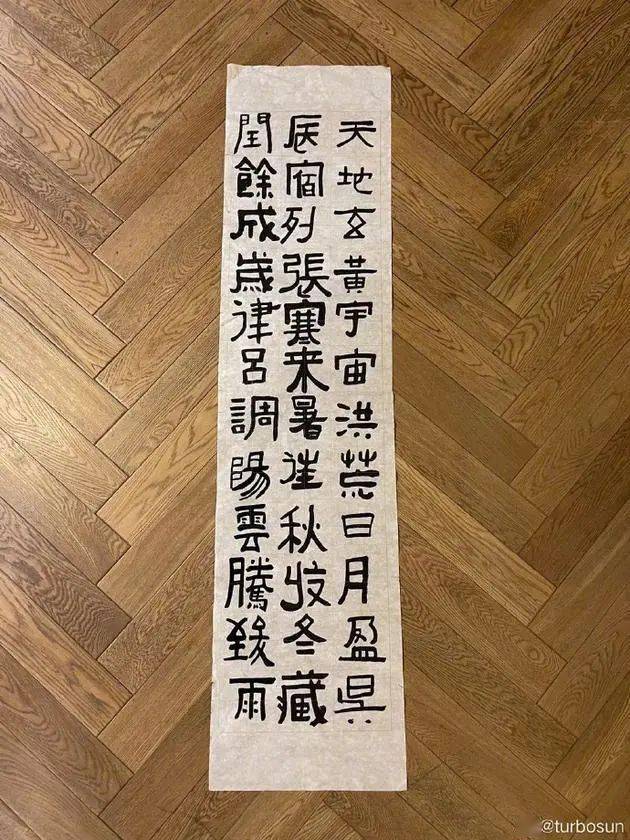 天地玄黃宇宙洪荒日月盈昃
辰宿列張寒来暑往秋收冬藏
閏餘成歲律呂調陽雲騰致雨
@turbosun